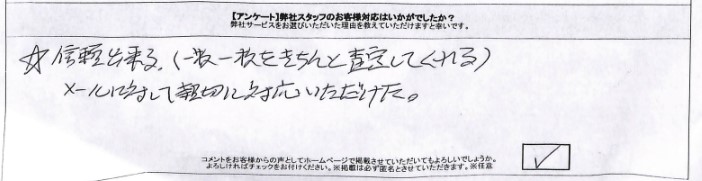 【アンケート】弊社スタッフのお客様対応はいかがでしたか？
弊社サービスをお選びいただいた理由を教えていただけますと幸いです。
☆信頼出来る。(一枚一枚をきちんと査定してくれる)
メールに対して親切に対応いただけた。
コメントをお客様からの声としてホームページで掲載させていただいてもよろしいでしょうか。
よろしければチェックをお付けください。※掲載は必ず匿名とさせていただきます。※任意